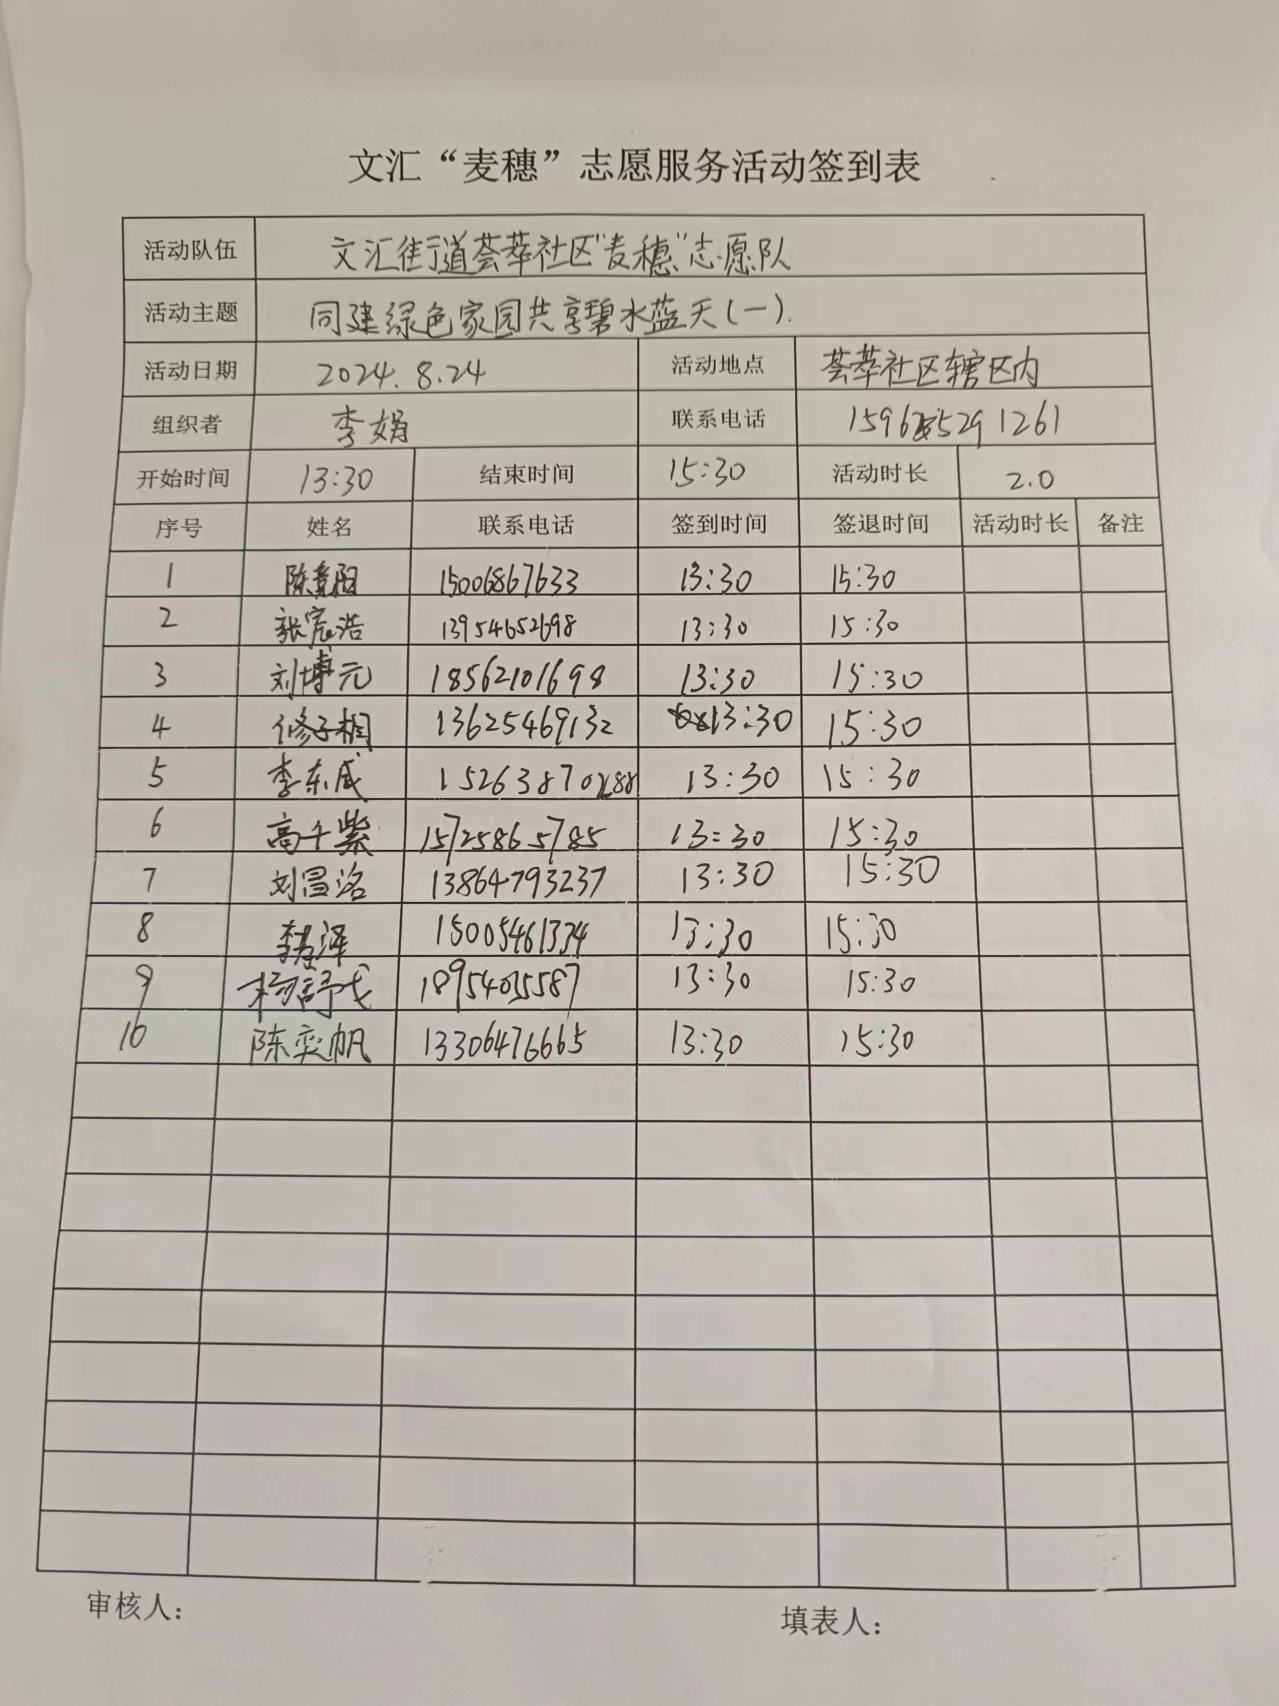 文汇“麦穗”志愿服务活动签到表
活动队伍 文汇街道荟萃社区“麦穗”志愿队
活动主题 同建绿色家园共享碧水蓝天(一).
活动日期 2024.8.24 活动地点 荟萃社区辖区内
组织者 李娟 联系电话
开始时间 13:30 结束时间 15:30 活动时长 2.0
序号 姓名 联系电话 签到时间 签退时间 活动时长 备注
1 15006867633 13:30 15:30
2 张宸浩 13954652698 13:30 15:30
3 刘博元 18562101698 13:30 15:30
4 修子桐 13625469132 13:30 15:30
5 李东成 13:30 15:30
6 高千紫 15725865785 13:30 15:30
7 刘昌洛 13864793237 13:30 15:30
8 15005461334 13:30 15:30
9 13:30 15:30
10 陈奕帆 13306476665 13:30 15:30
审核人: 填表人: